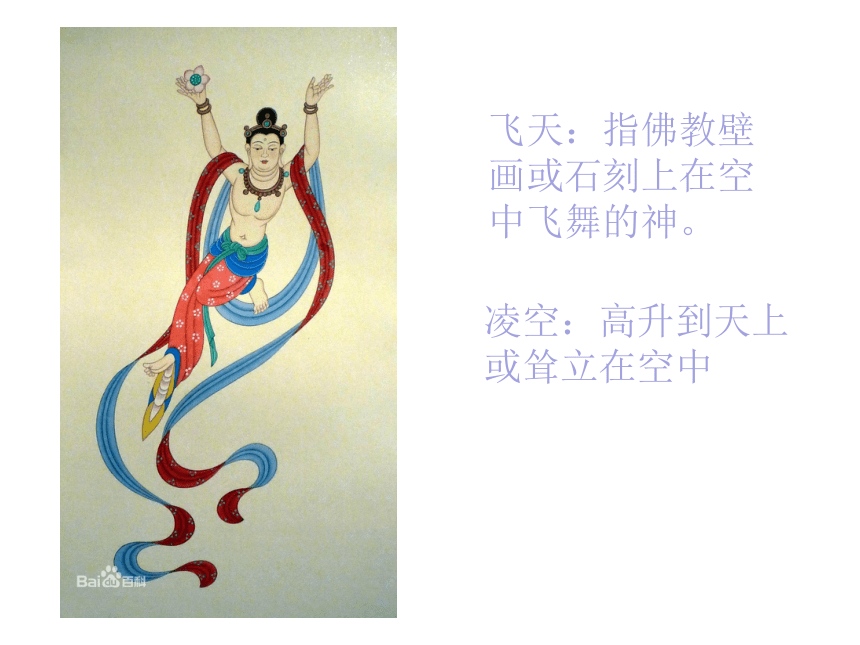 飞天：指佛教壁
画或石刻上在空
中飞舞的神。
凌空：高升到天上
或耸立在空中
Bai du 百科